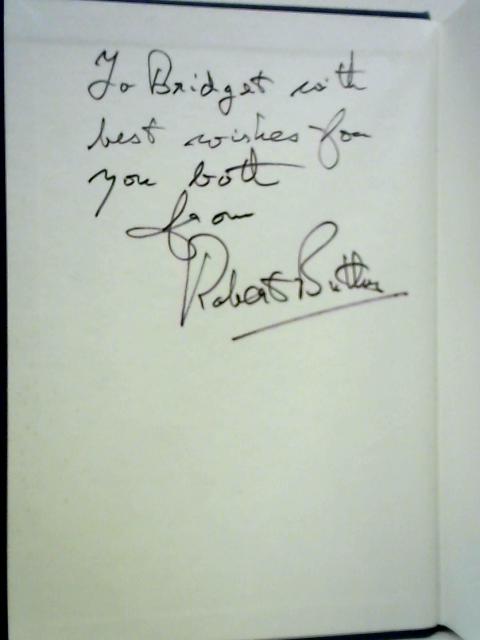 To Bridget with
best wishes for
you both
from
Robert Butler